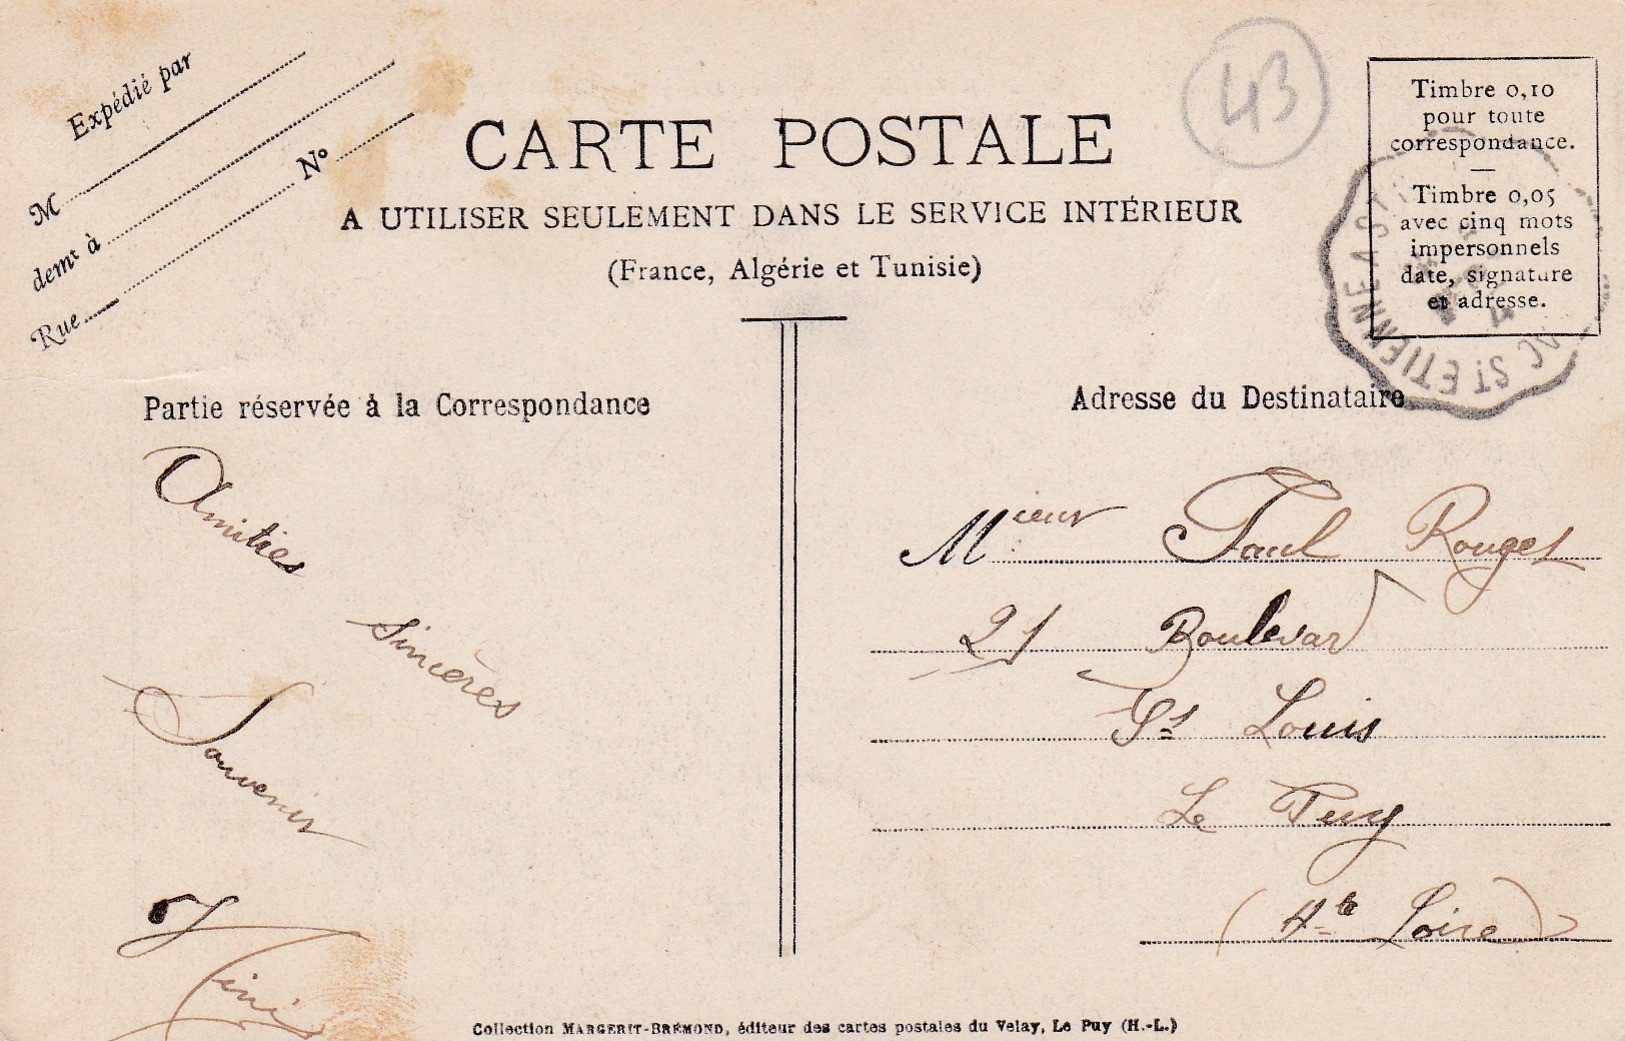 Expédié par
M
demt à
Rue
No
CARTE POSTALE
A UTILISER SEULEMENT DANS LE SERVICE INTÉRIEUR
(France, Algérie et Tunisie)
43
Timbre 0,10
pour toute
correspondance.
—
Timbre 0,05
avec cinq mots
impersonnels
date, signature
et adresse.
ST ETIENNE A ST
Partie réservée à la Correspondance
Amitiés
sincères
Souvenir
Adresse du Destinataire
Mieur Paul Rouget
21 Boulevard
St Louis
Le Puy
(Hte Loire)
Collection MARGERIT-BRÉMOND, éditeur des cartes postales du Velay, Le Puy (H.-L.)